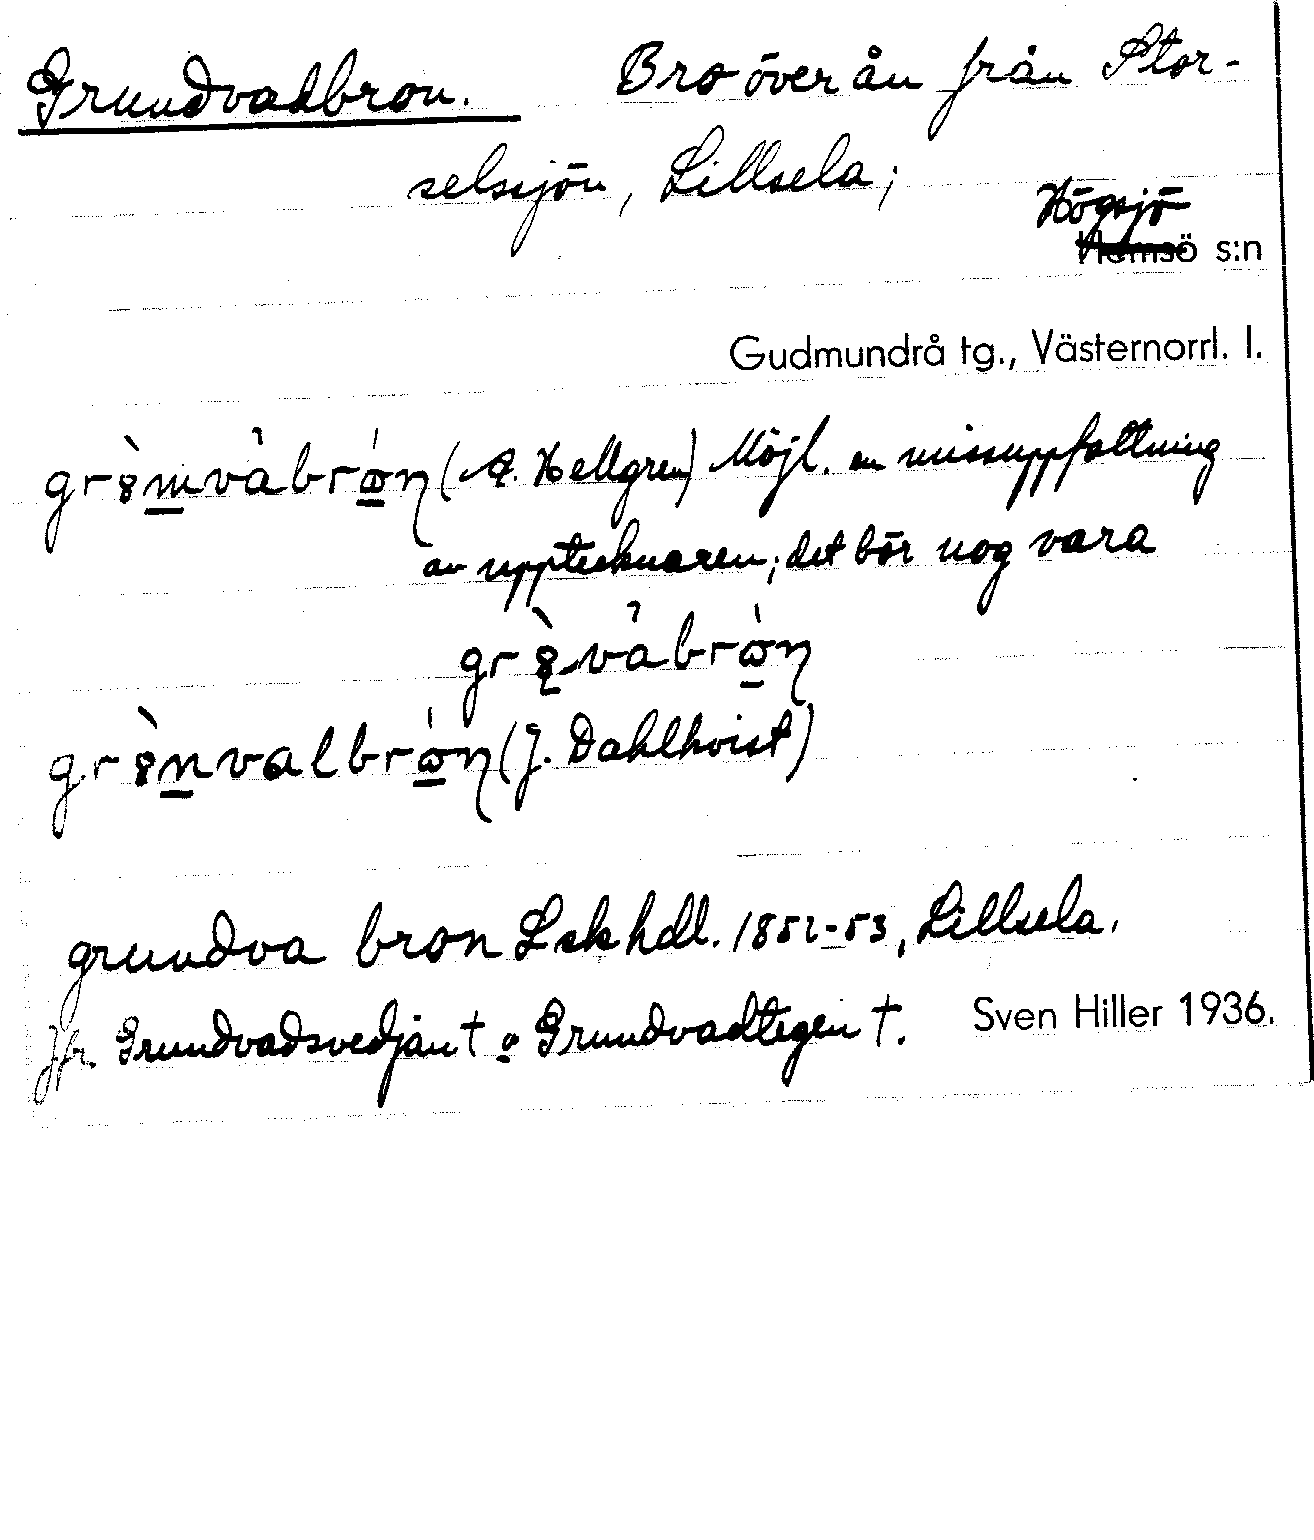 Grundvadbron. Bro över ån från Stor-
selssjön, Lillsela;
Högsjö
Hemsö s:n
Gudmundrå tg., Västernorrl. l.
(A. Hellgren) Möjl. en missuppfattning
av upptecknaren; det bör nog vara
(J. Dahlkvist)
grundva bron Lsk hdl. 1852-53, Lillsela.
Jfr. Grundvadsvedjan † o Grundvadtegen †. Sven Hiller 1936.